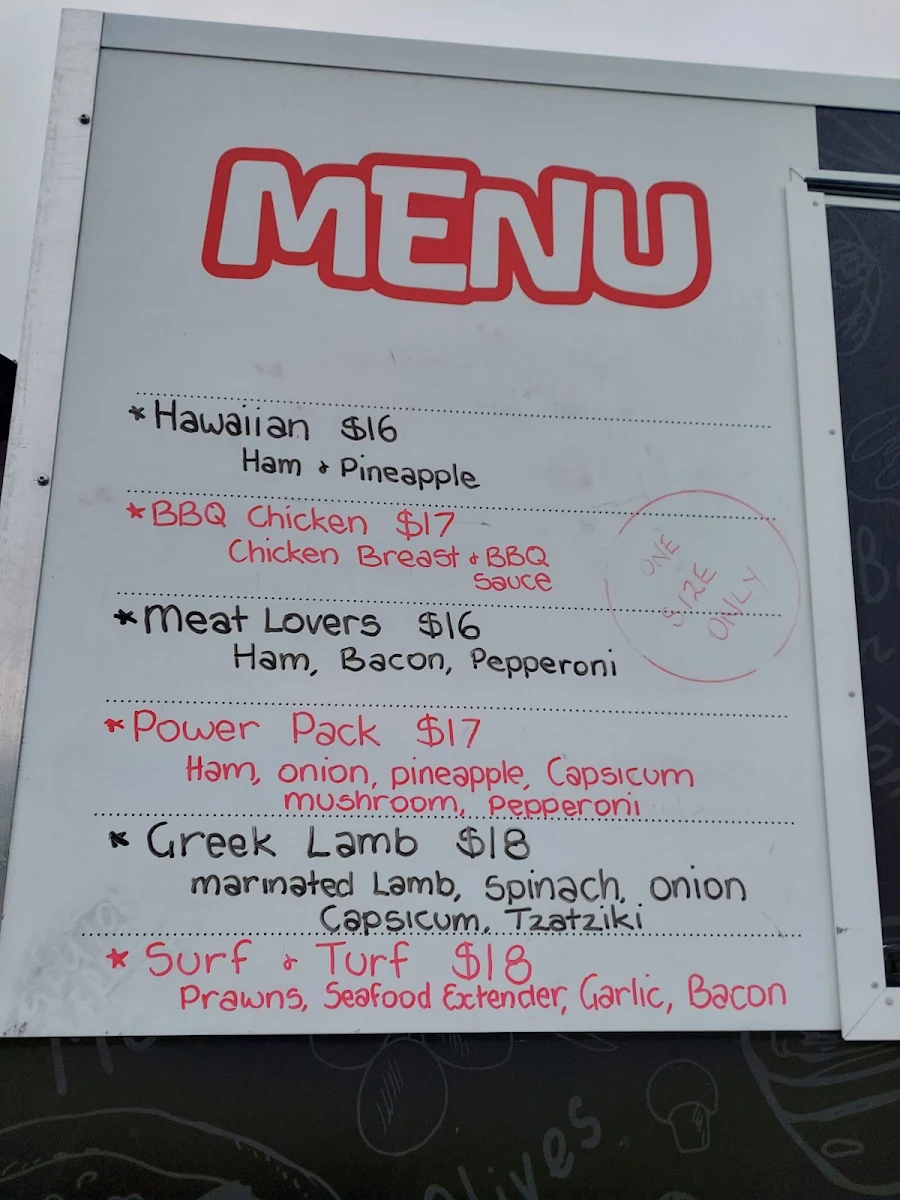 MENU
*Hawaiian $16
Ham & Pineapple
*BBQ Chicken $17
Chicken Breast & BBQ
Sauce
*Meat Lovers $16
Ham, Bacon, Pepperoni
ONE
SIZE
ONLY
*Power Pack $17
Ham, onion, pineapple, Capsicum
mushroom, Pepperoni
* Greek Lamb $18
marinated Lamb, Spinach, onion
Capsicum, Tzatziki
* Surf & Turf $18
Prawns, Seafood Extender, Garlic, Bacon
Olives